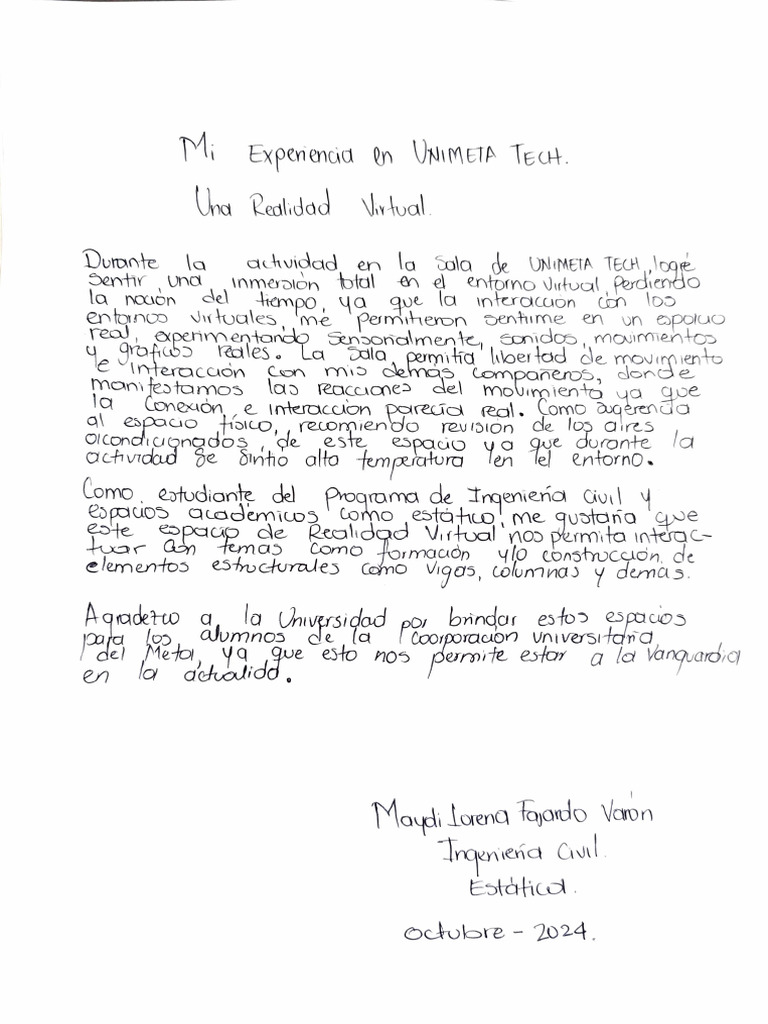 Mi Experiencia en UNIMETA TECH.
Una Realidad Virtual.
Durante la actividad en la Sala de UNIMETA TECH, logré
sentir una inmersión total en el entorno virtual, perdiendo
la noción del tiempo, ya que la interacción con los
entornos virtuales, me permitieron sentirme en un espacio
real, experimentando sensorialmente, sonidos, movimientos
y graficos reales. La Sala, permitía libertad de movimiento
e interacción con mis demás compañeros, donde
manifestamos las reacciones del movimiento ya que
la Conexión, e interacción parecía real. Como sugerencia
al espacio físico, recomiendo revisión de los aires
acondicionados, de este espacio ya que durante la
actividad se sintio alta temperatura en el entorno.
Como estudiante del Programa de Ingeniería Civil y
espacios académicos como estática, me gustaría que
este espacio de Realidad Virtual nos permita interac-
tuar con temas como formación y/o construcción de
elementos estructurales como vigas, columnas y demas.
Agradezco a la Universidad por brindar estos espacios
para los alumnos de la Coorporación universitaria
del Meta, ya que esto nos permite estar a la Vanguardia
en la actualida.
Maydi Lorena Fajardo Varón
Ingeniería Civil.
Estática.
Octubre - 2024.